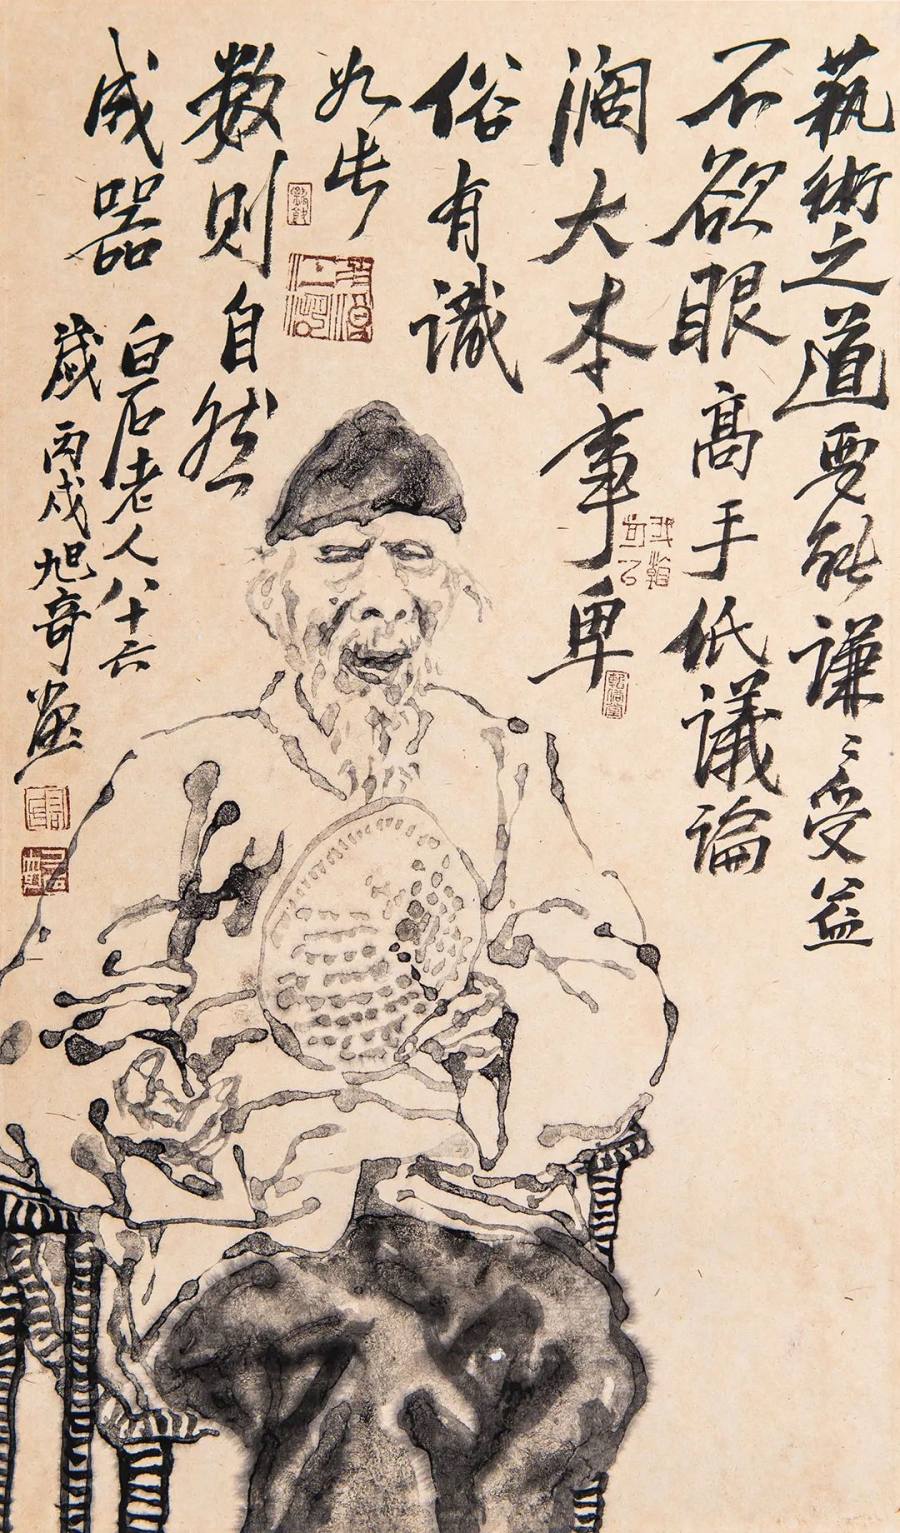 藝術之道要能謙〻受益
不欲眼高手低議論
濶大本事卑
俗有識
如此
數則自然
成器
白石老人八十六
歲丙戌旭奇畫